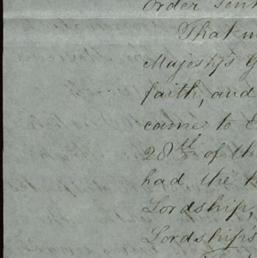 order
That
Majesty's
faith, and
came to
28th of th
had the
Lordship,
Lordship's